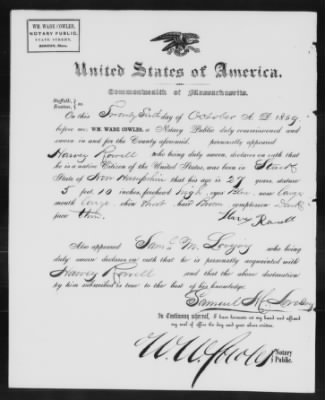 WM. WADE COWLES,
NOTARY PUBLIC,
STATE STREET,
BOSTON, Mass.
United States of America.
Commonwealth of Massachusetts.
Suffolk,
Boston, ss.
On this Twenty Sixth day of October A. D. 1859,
before me, WM. WADE COWLES, a Notary Public duly commissioned and
sworn in and for the County aforesaid, personally appeared
Harvey Rowell who being duly sworn, declares on oath that
he is a native Citizen of the United States, was born in Stark
State of New Hampshire that his age is 27 years, stature
5 feet 10 inches, forehead high, eyes blue, nose large
mouth large chin short, hair Brown complexion Dark
face thin.
Harvey Rowell
Also appeared Saml. M. Lovejoy who being
duly sworn declares on oath that he is personally acquainted with
Harvey Rowell and that the above declaration
by him subscribed is true to the best of his knowledge.
Samuel M. Lovejoy
In Testimony whereof, I have hereunto set my hand and affixed
my seal of office the day and year above written.
W. W. Cowles Notary
Public.